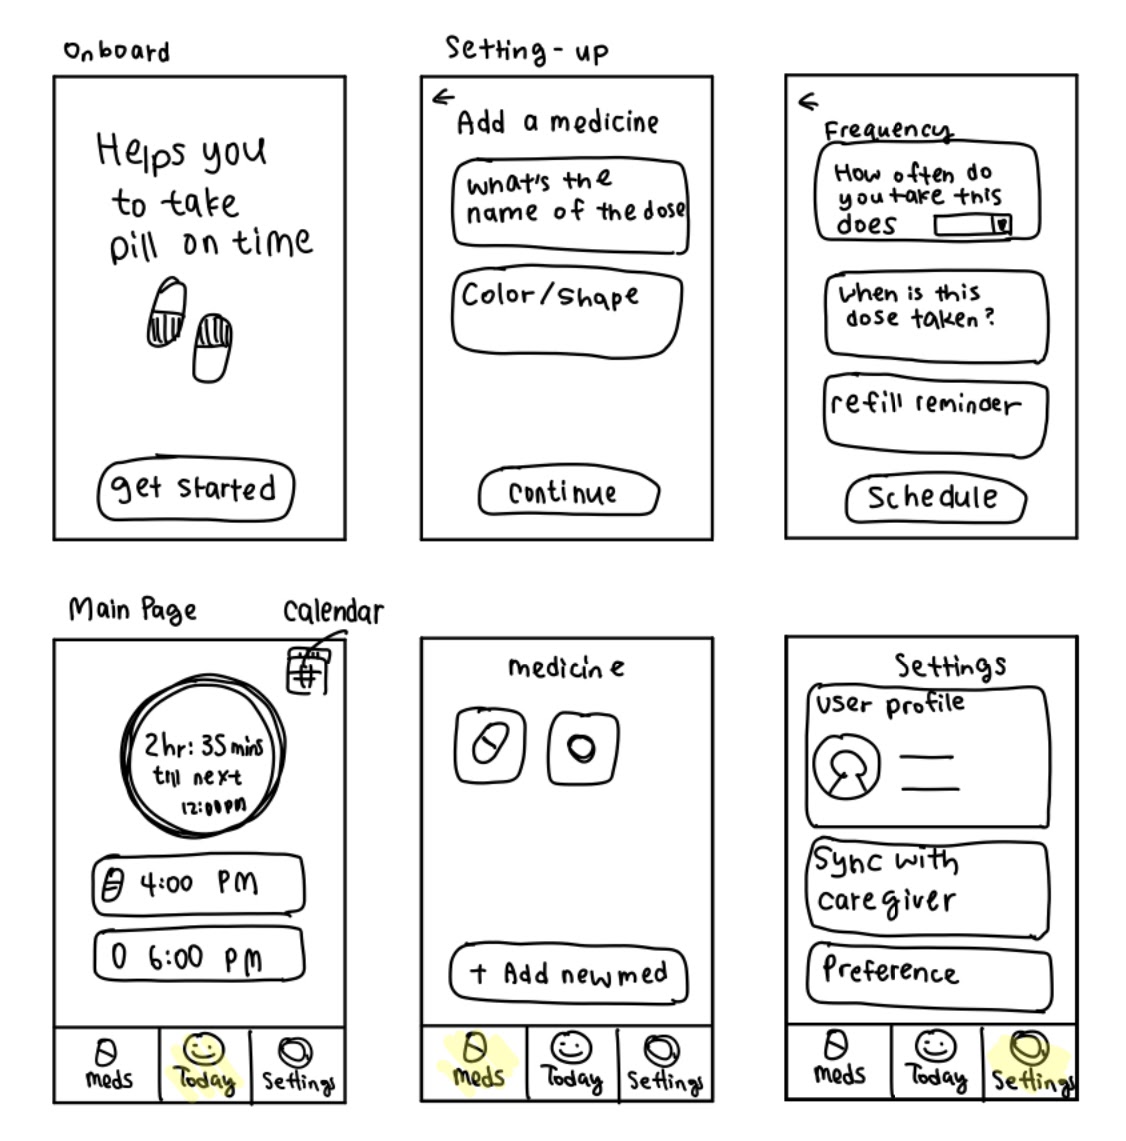 Onboard
Helps you
to take
pill on time
get started
Setting-up
Add a medicine
what's the
name of the dose
Color/shape
Continue
Frequency
How often do
you take this
does
When is this
dose taken?
refill reminder
Schedule
Main Page
Calendar
2hr: 35 mins
till next
12:00 PM
4:00 PM
6:00 PM
Meds
Today
Settings
medicine
+ Add new med
Meds
Today
Settings
Settings
user profile
Sync with
caregiver
Preference
Meds
Today
Settings